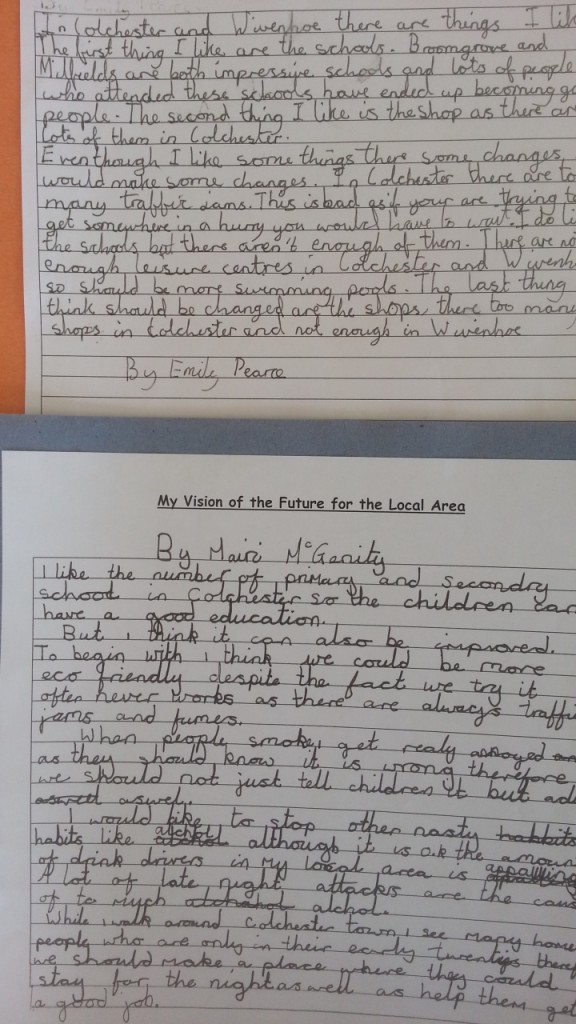 In Colchester and Wivenhoe there are things I lik
The first thing I like are the schools. Broomgrove and
Millfields are both impressive schools and lots of people
who attended these schools have ended up becoming go
people. The second thing I like is the shop as there ar
Lots of them in Colchester.
Eventhough I like some things there some changes
would make some changes. In Colchester there are to
many traffic jams. This is bad as if your are trying to
get somewhere in a hurry you would have to wait. I do li
the schools but there aren't enough of them. There are no
enough leisure centres in Colchester and Wivenh
so should be more swimming pools. The last thing
think should be changed are the shops, there too many
shops in Colchester and not enough in Wivenhoe
By Emily Pearce
My Vision of the Future for the Local Area
By Mairi McGenity
I like the number of primary and secondry
school in Colchester so the children can
have a good education.
But i think it can also be improved.
To begin with i think we could be more
eco friendly despite the fact we try it
often never works as there are always traffi
jams and fumes.
When people smoke i get realy annoyed an
as they should know it is wrong therefore
we should not just tell children it but adu
aswell.
I would like to stop other nasty habbits
habits like alchol although it is o.k the amoun
of drink drivers in my local area is appalling
A lot of late night attacks are the caus
of to much alchol.
While i walk around Colchester town i see many home
people who are only in their early twenties theref
we should make a place where they could
stay for the night aswell as help them get
a good job.